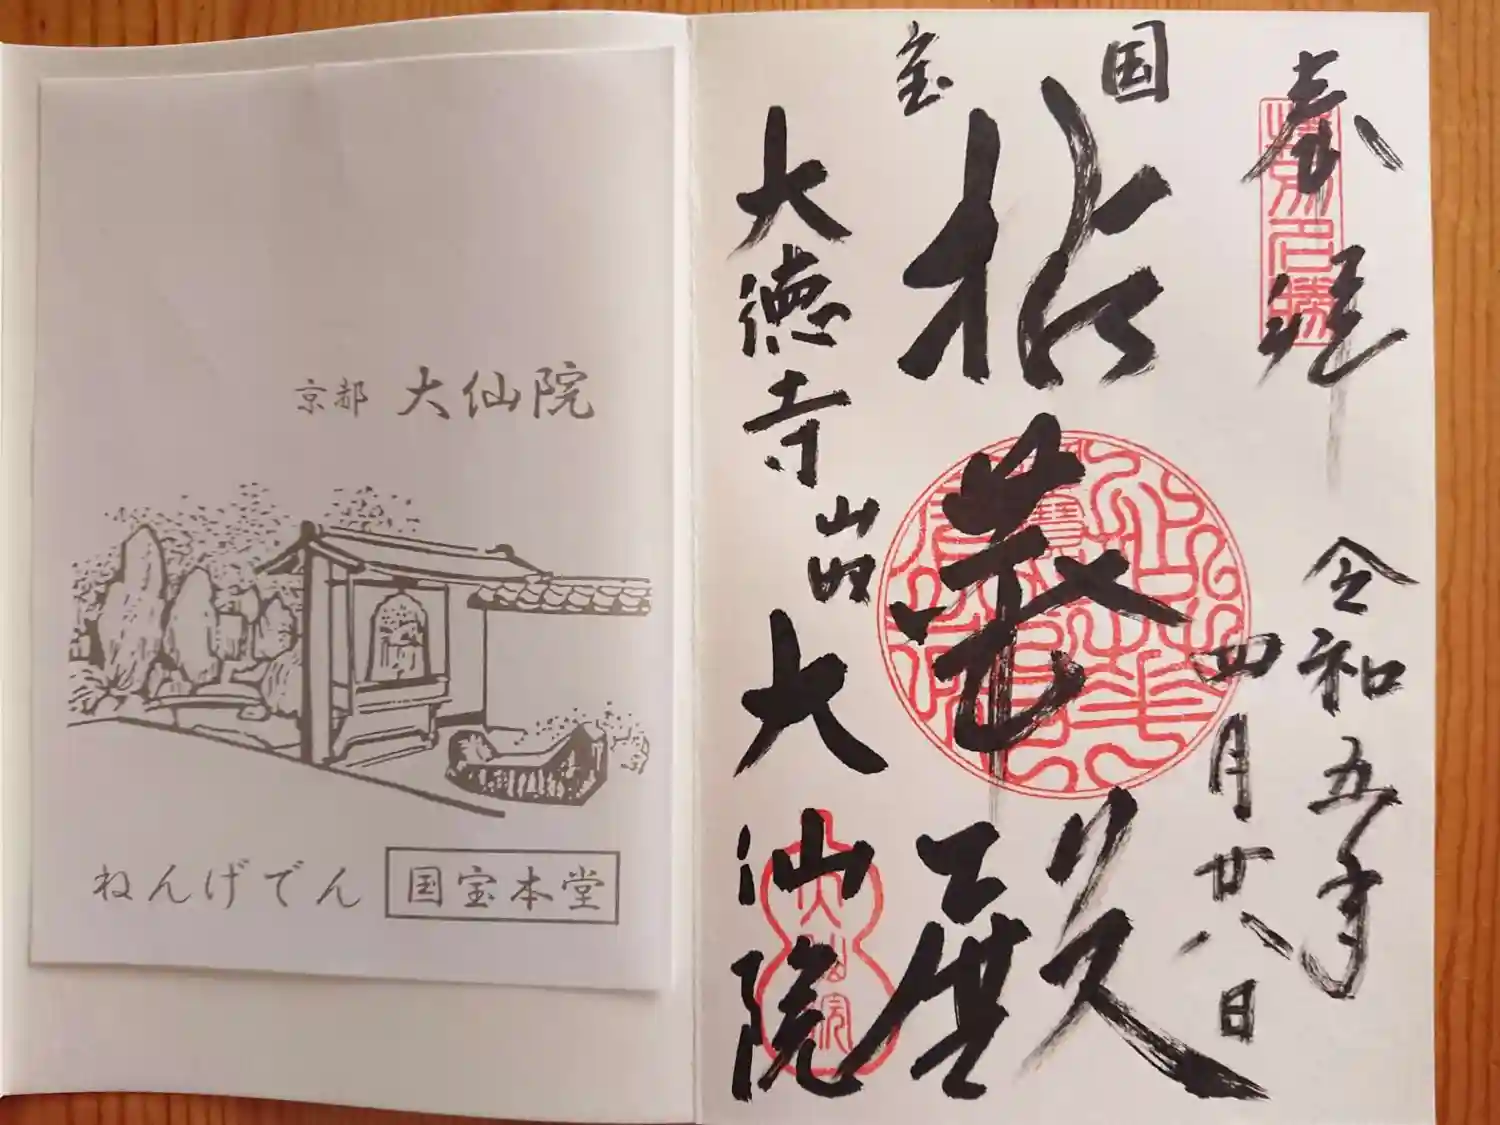 京都 大仙院
ねんげでん 国宝本堂
奉拝
特別名勝
令和五年
四月廿八日
国宝
拈華殿
大徳寺山内
大仙院
大仙院